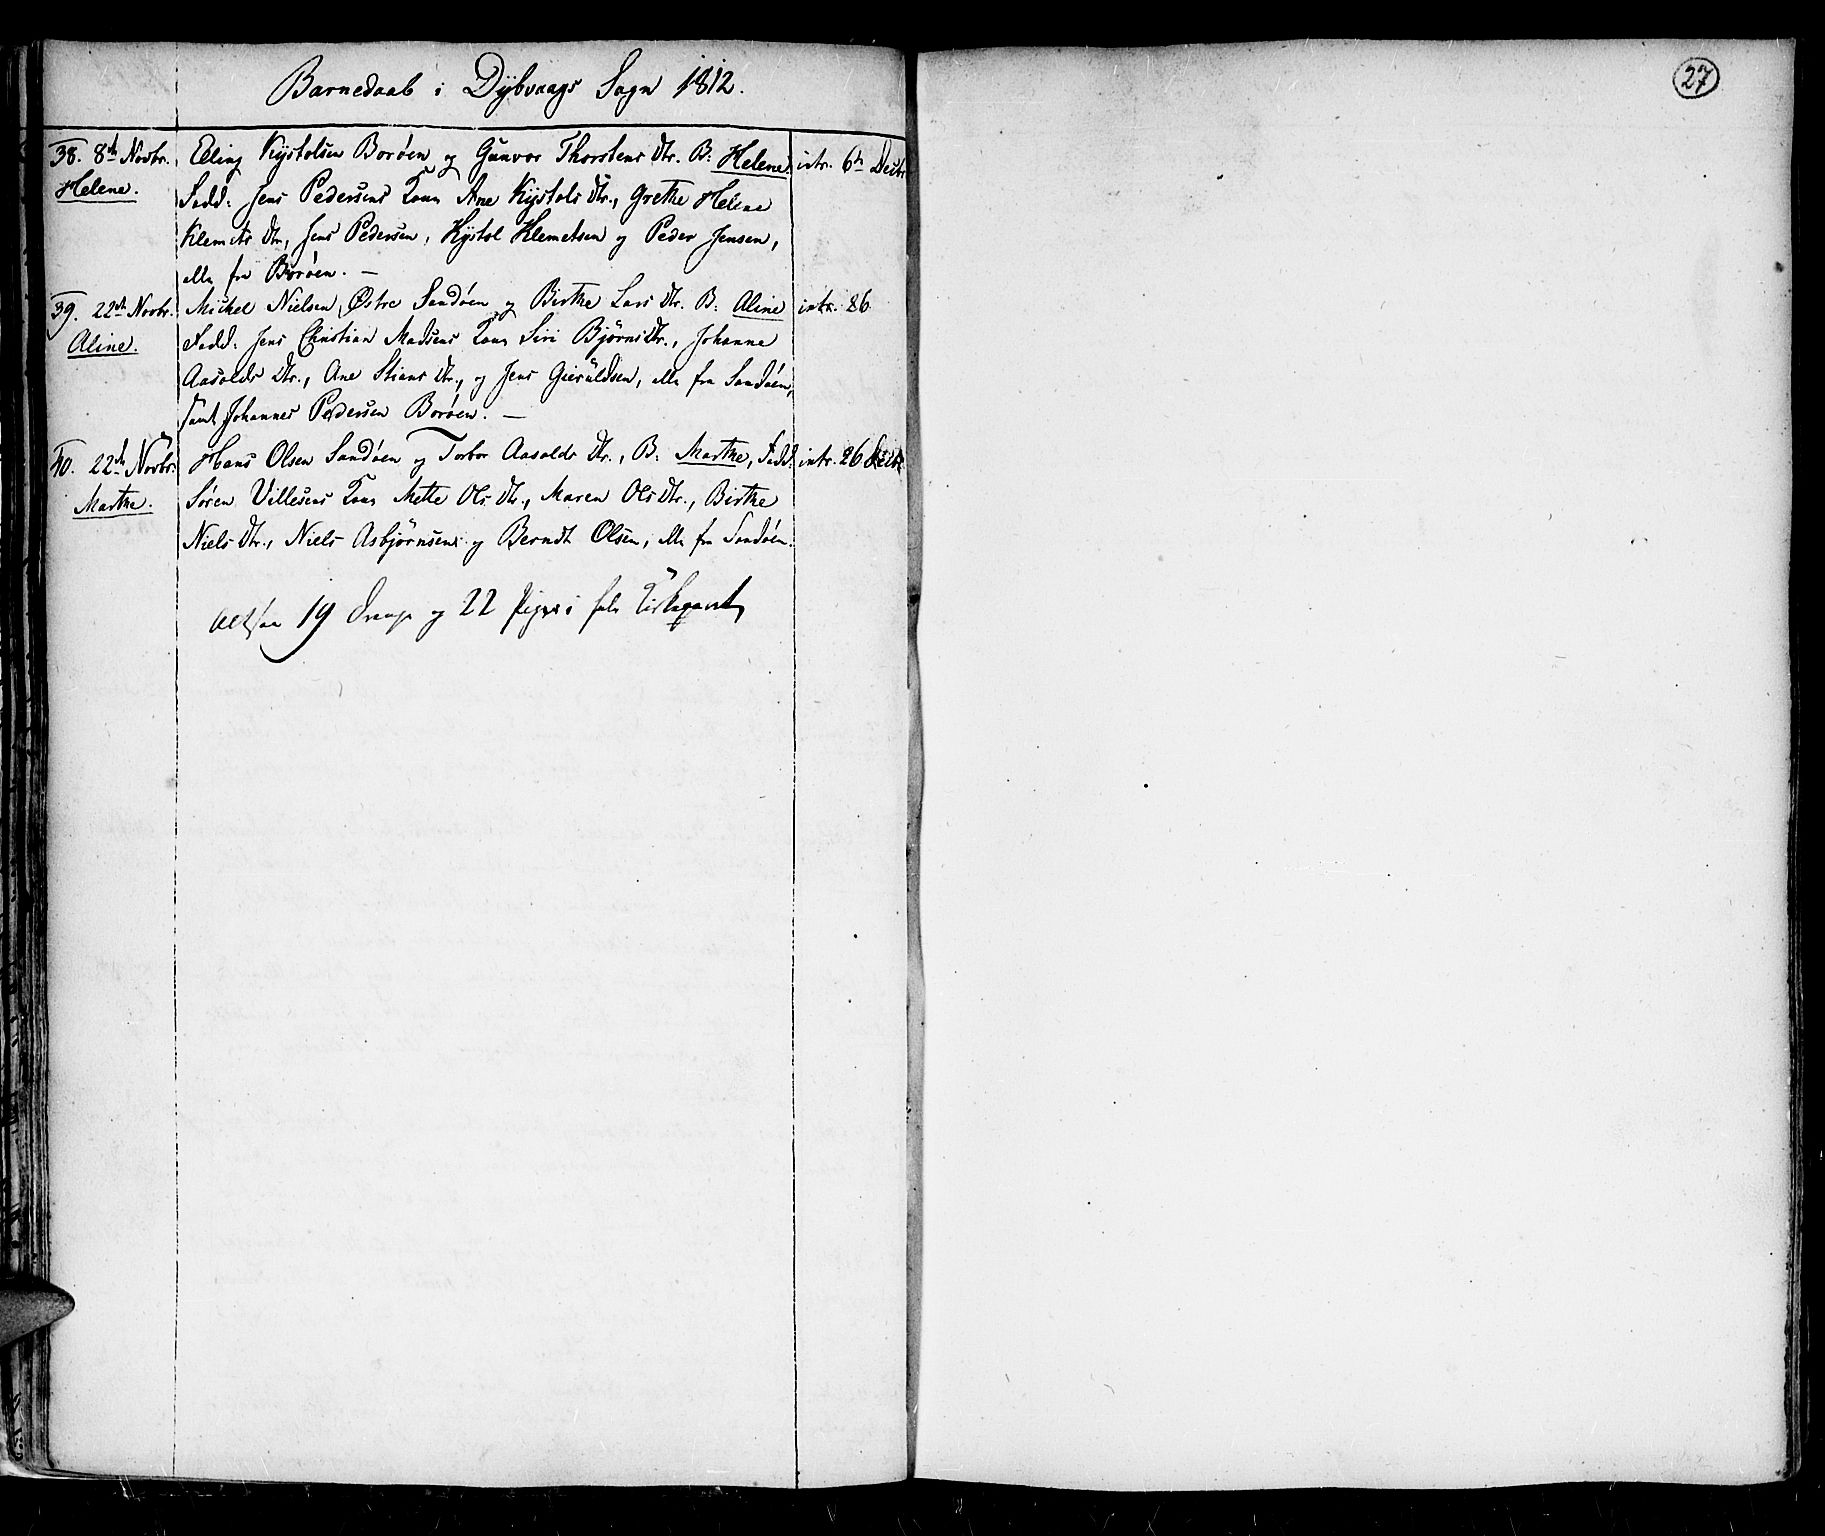 Barnedaab i Dybvaags Sogn 1812.
27
38. 8de Novbr. Elling Kystolsen Borøen og Gunvor Thorstens Dtr. B: Helene intr. 6te Decbr
Helene. Fadd: Jens Pedersens Kone Ane Kystols Dtr., Grethe Helene
Klemets Dtr, Jens Pedersen, Kystol Klemetsen og Peder Jensen,
alle fra Borøen. —
39. 22de Novbr. Michel Nielsen Østre Sandøen og Birthe Lars Dtr. B: Aline intr. 26
Aline. Fadd: Jens Christian Madsens Kone Siri Bjørns Dtr., Johanne
Aasolds Dtr., Ane Stians Dtr., og Jens Gieruldsen, alle fra Sandøen,
samt Johannes Pedersen Borøen. —
40. 22de Novbr. Hans Olsen Sandøen og Torbor Aasolds Dtr., B: Marthe, Fadd. intr. 26 Decbr
Marthe. Søren Villesens Kone Mette Ols Dtr., Maren Ols Dtr., Birthe
Niels Dtr., Niels Asbjørnsen og Berndt Olsen, alle fra Sandøen.
Altsaa 19 Drenge og 22 Piger i hele